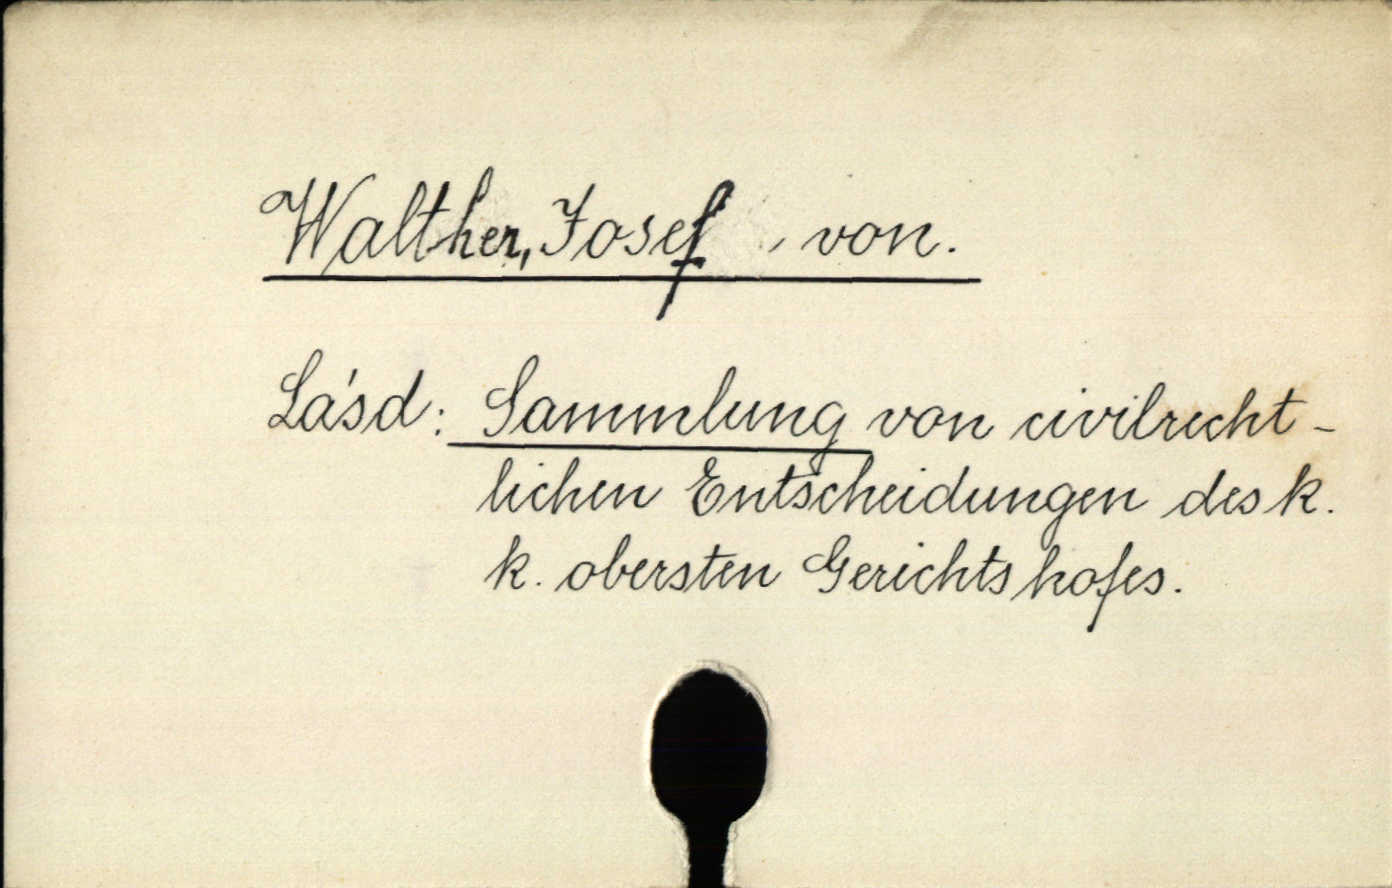 Walther, Josef , von.
Lásd: Sammlung von civilrecht-
lichen Entscheidungen des k.
k. obersten Gerichtshofes.